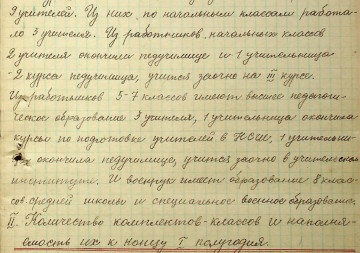 9 учителей. Из них по начальным классам работа-
ло 3 учителя. Из работников начальных классов
2 учителя окончили педучилище и 1 учительница
-2 курса педучилища, учится заочно на III курсе.
Из работников 5-7 классов имеют высшее педагоги-
ческое образование 3 учителя, 1 учительница окончила
курсы по подготовке учителей в НСШ, 1 учительни-
окончила педучилище, учится заочно в учительском
институте. И военрук имеет образование 8 клас-
сов средней школы и специальное военное образование.
II. Количество комплектов-классов и наполня-
емость их к концу I полугодия.